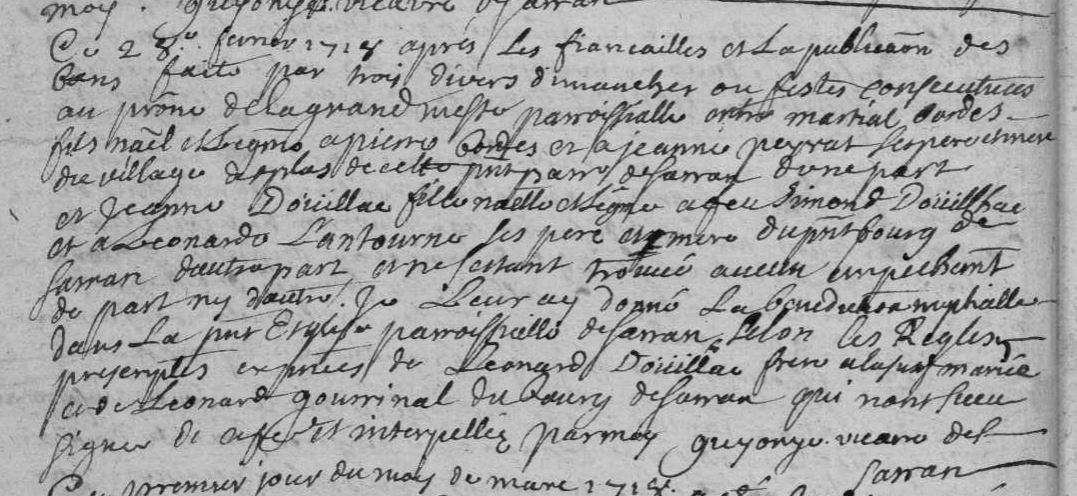 moy. Guyonye vicaire de Sarran
Ce 28e. fevrier 1718 apres les fiancailles et La publicaon des
bans faite par trois divers dimanches ou festes consecutives
au prone de la grand messe parroissialle entre martial bordes
fils naël et legme a pierre bordes et a jeanne peyrat ses pere et mere
du village de cette pnt parro de Sarran d'une part
et Jeanne Doüillac fille naelle et legme a feu Simond Doüilhac
et a Leonarde Lantourne ses pere et mere du pnt bourg de
Sarran d'autre part et ne sestant trouvé aucun empechemt
de part ny d'autre. Je Leur ay donné La benediction nuptialle
dans La pnt Esglise parroissialle de Sarran selon les Regles
prescriptes en pnces de Leonard Doüillac frere a la susd mariée
et de Leonard gourinal du bourg de Sarran qui n'ont sceu
signer de ce et interpellez par moy Guyonye vicaire de
Sarran
Ce premier jour du moy de mars 1718.